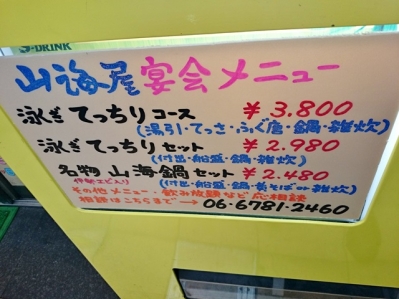 S-DRINK
山海屋 宴会メニュー
泳ぎてっちりコース ¥3.800
(湯引・てっさ・ふぐ唐・鍋・雑炊)
泳ぎてっちりセット ¥2.980
(付出・船盛・鍋・雑炊)
名物 山海鍋セット ¥2.480
伊勢エビ入り (付出・船盛・鍋・黄そばor雑炊)
その他 メニュー・飲み放題など 応相談
相談はこちらまで→ 06・6781・2460